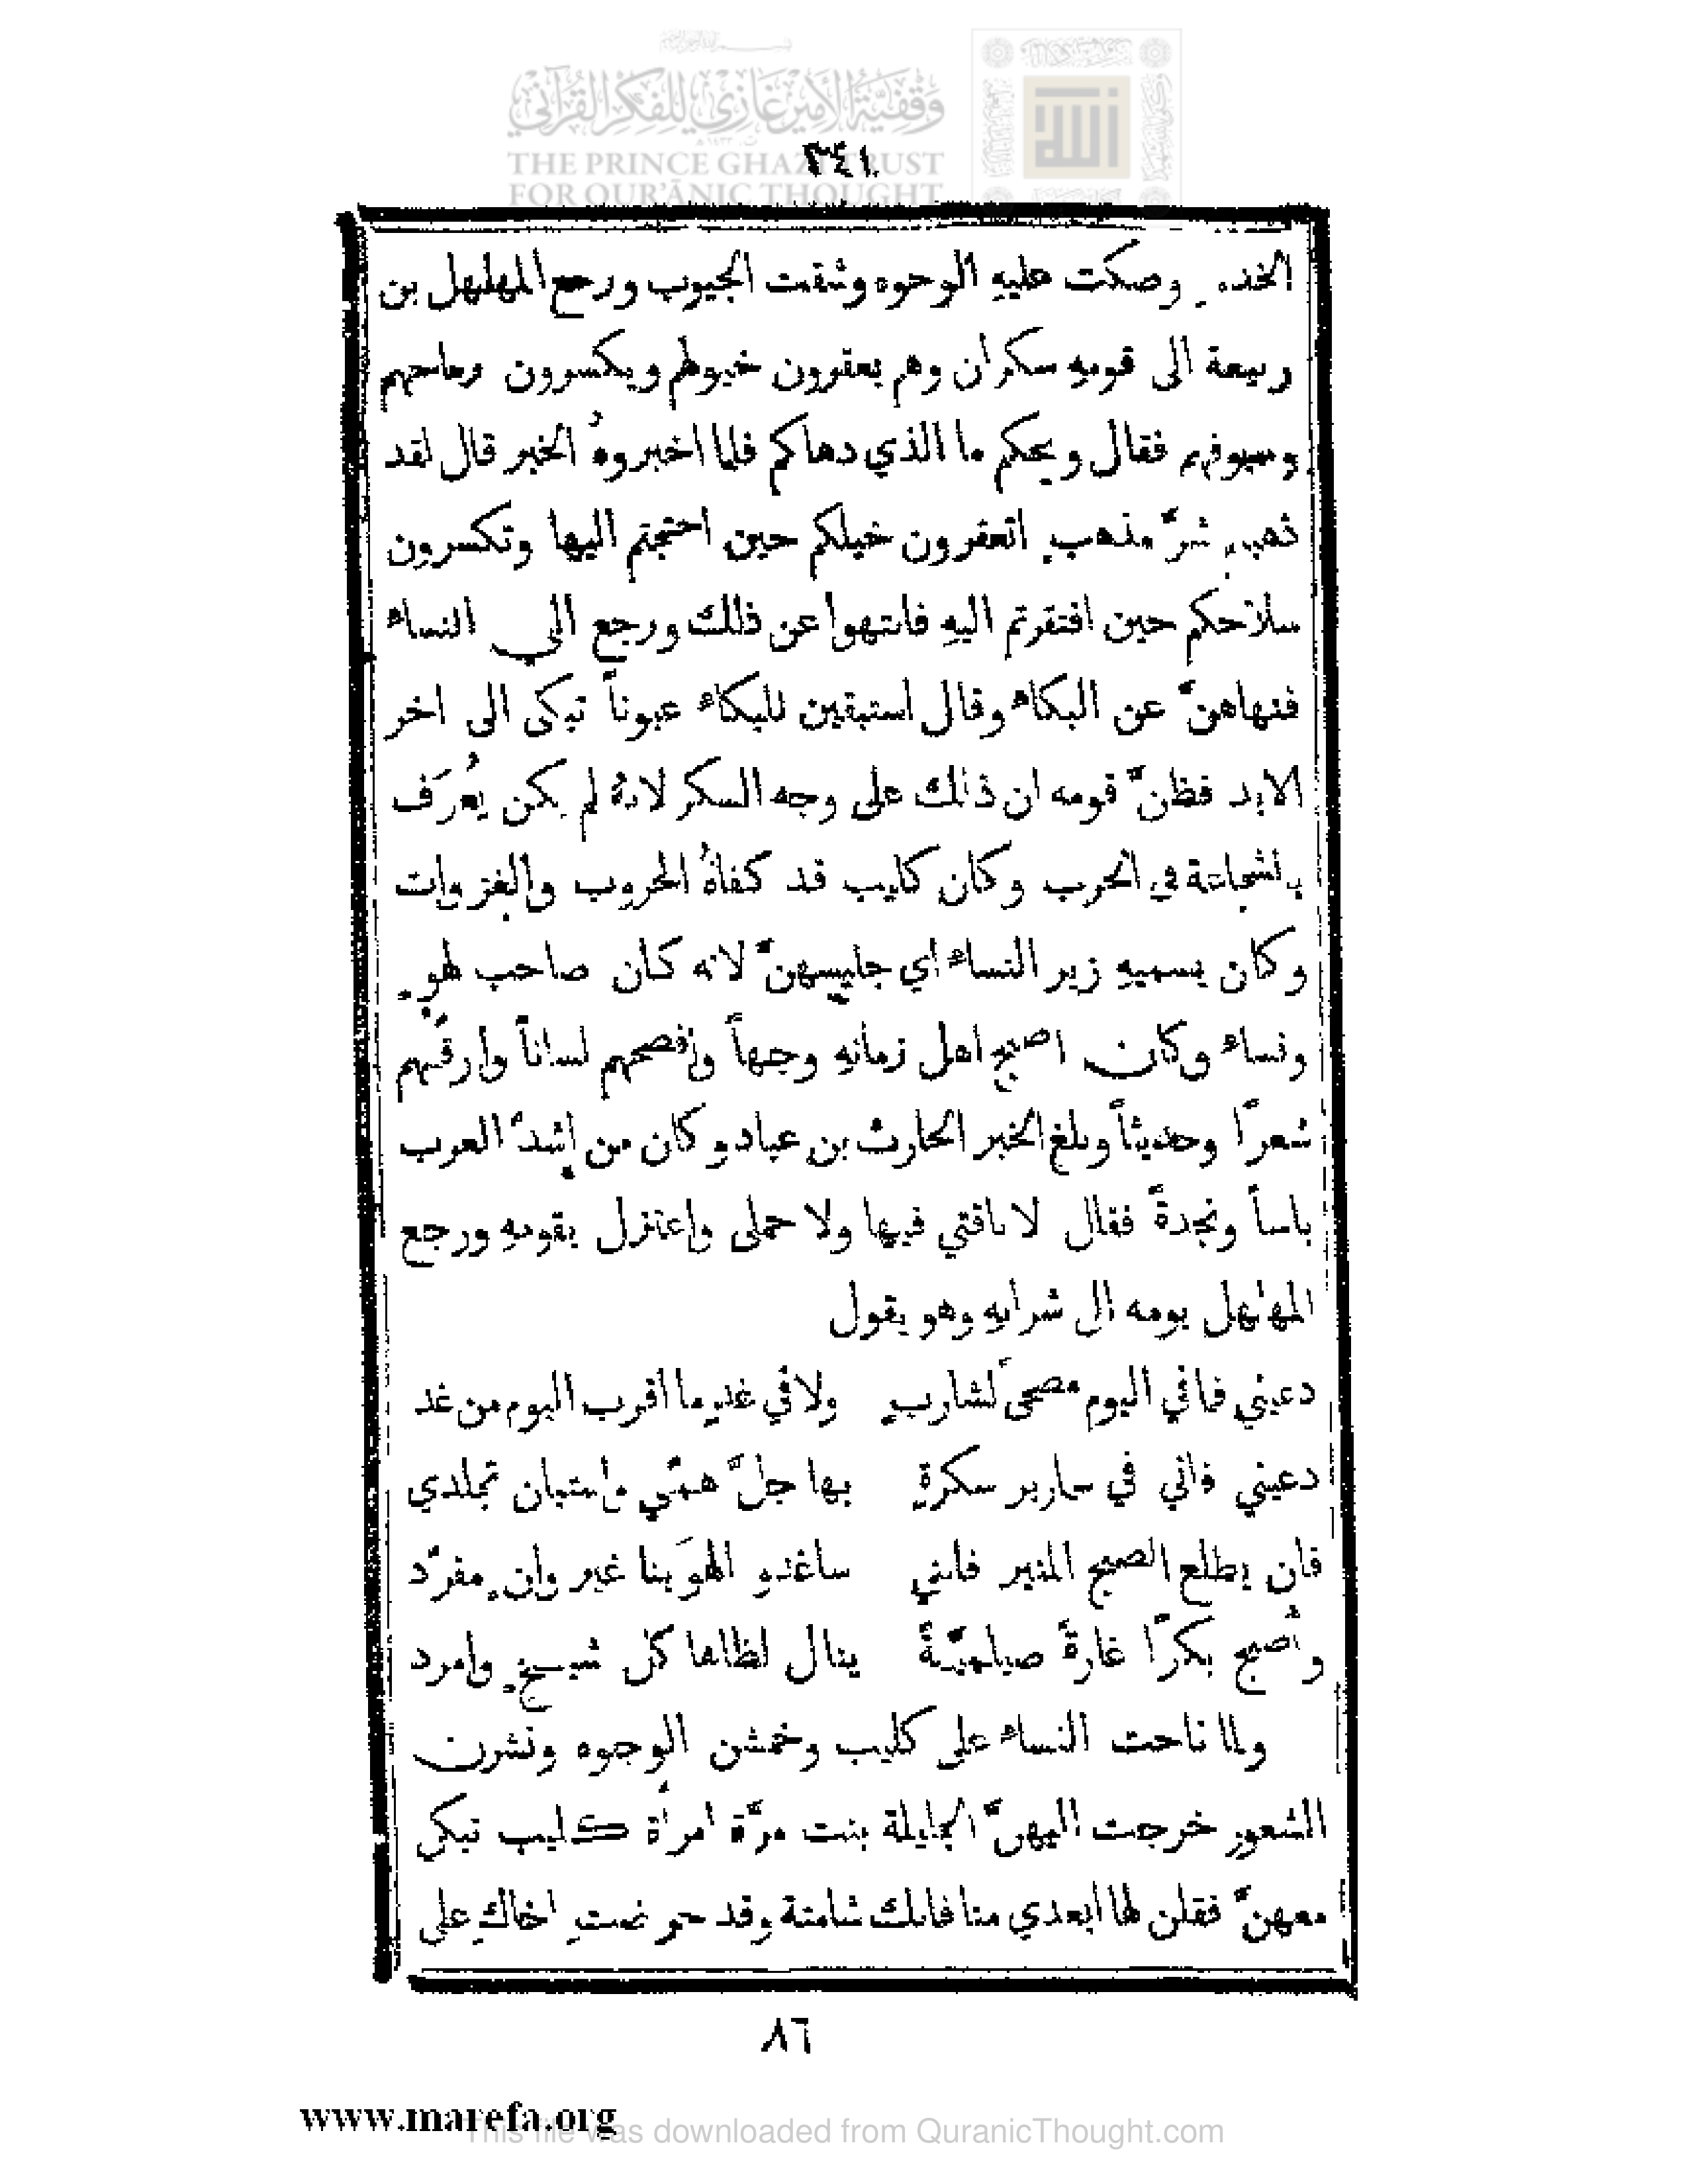 وقفية الأمير غازي للفكر القرآني
THE PRINCE GHAZI TRUST
FOR QUR'ĀNIC THOUGHT
٣٤١
وصكت عليهِ الوجوه وشقت الجيوب ورجع المهلهل بن
ربيعة الى قومهِ سكران وهم يعقرون خيولهم ويكسرون رماحهم
وسيوفهم فقال ويحكم ما الذي دهاكم فلما اخبروهُ الخبر قال لقد
ذهبتم شرَّ مذهبٍ اتعقرون خيلكم حين احتجتم اليها وتكسرون
سلاحكم حين افتقرتم اليهِ فانتهوا عن ذلك ورجع الى النساء
فنهاهنَّ عن البكاء وقال استبقين للبكاء عيوناً تبكى الى اخر
الابد فظنَّ قومه ان ذلك على وجه السكر لانهُ لم يكن يُعرَف
بالشجاعة في الحرب وكان كليب قد كفاهُ الحروب والغزوات
وكان يسميهِ زير النساء اي جليسهنَّ لانه كان صاحب لهوٍ
ونساء وكان اصبح اهل زمانهِ وجهاً وافصحهم لساناً وارقَّهم
شعرًا وحديثاً وبلغ الخبر الحارث بن عباد وكان من اشدّ العرب
باساً ونجدةً فقال لا ناقتي فيها ولا جملى واعتزل بقومهِ ورجع
المهلهل يومه الى شرابهِ وهو يقول
دعيني فما في اليوم مصحىً لشاربٍ ولا في غدٍ ما اقرب اليوم من غد
دعيني فاني في سمادير سكرةٍ بها جلَّ همّي واستبان تجلدي
فان يطلع الصبح المنير فانني ساغدو الهوَينا غير وانٍ مفرّد
واُصبح بكرًا غارةً صيلميّةً ينال لظاها كل شيخٍ وامرد
ولما ناحت النساء على كليب وخمشن الوجوه ونشرن
الشعور خرجت اليهنَّ الجليلة بنت مرَّة امرأة كليب تبكى
معهنَّ فقلن لها ابعدي منا فانك شامتة وقد حرضتِ اخاكِ على
٨٦
www.marefa.org
This file was downloaded from QuranicThought.com